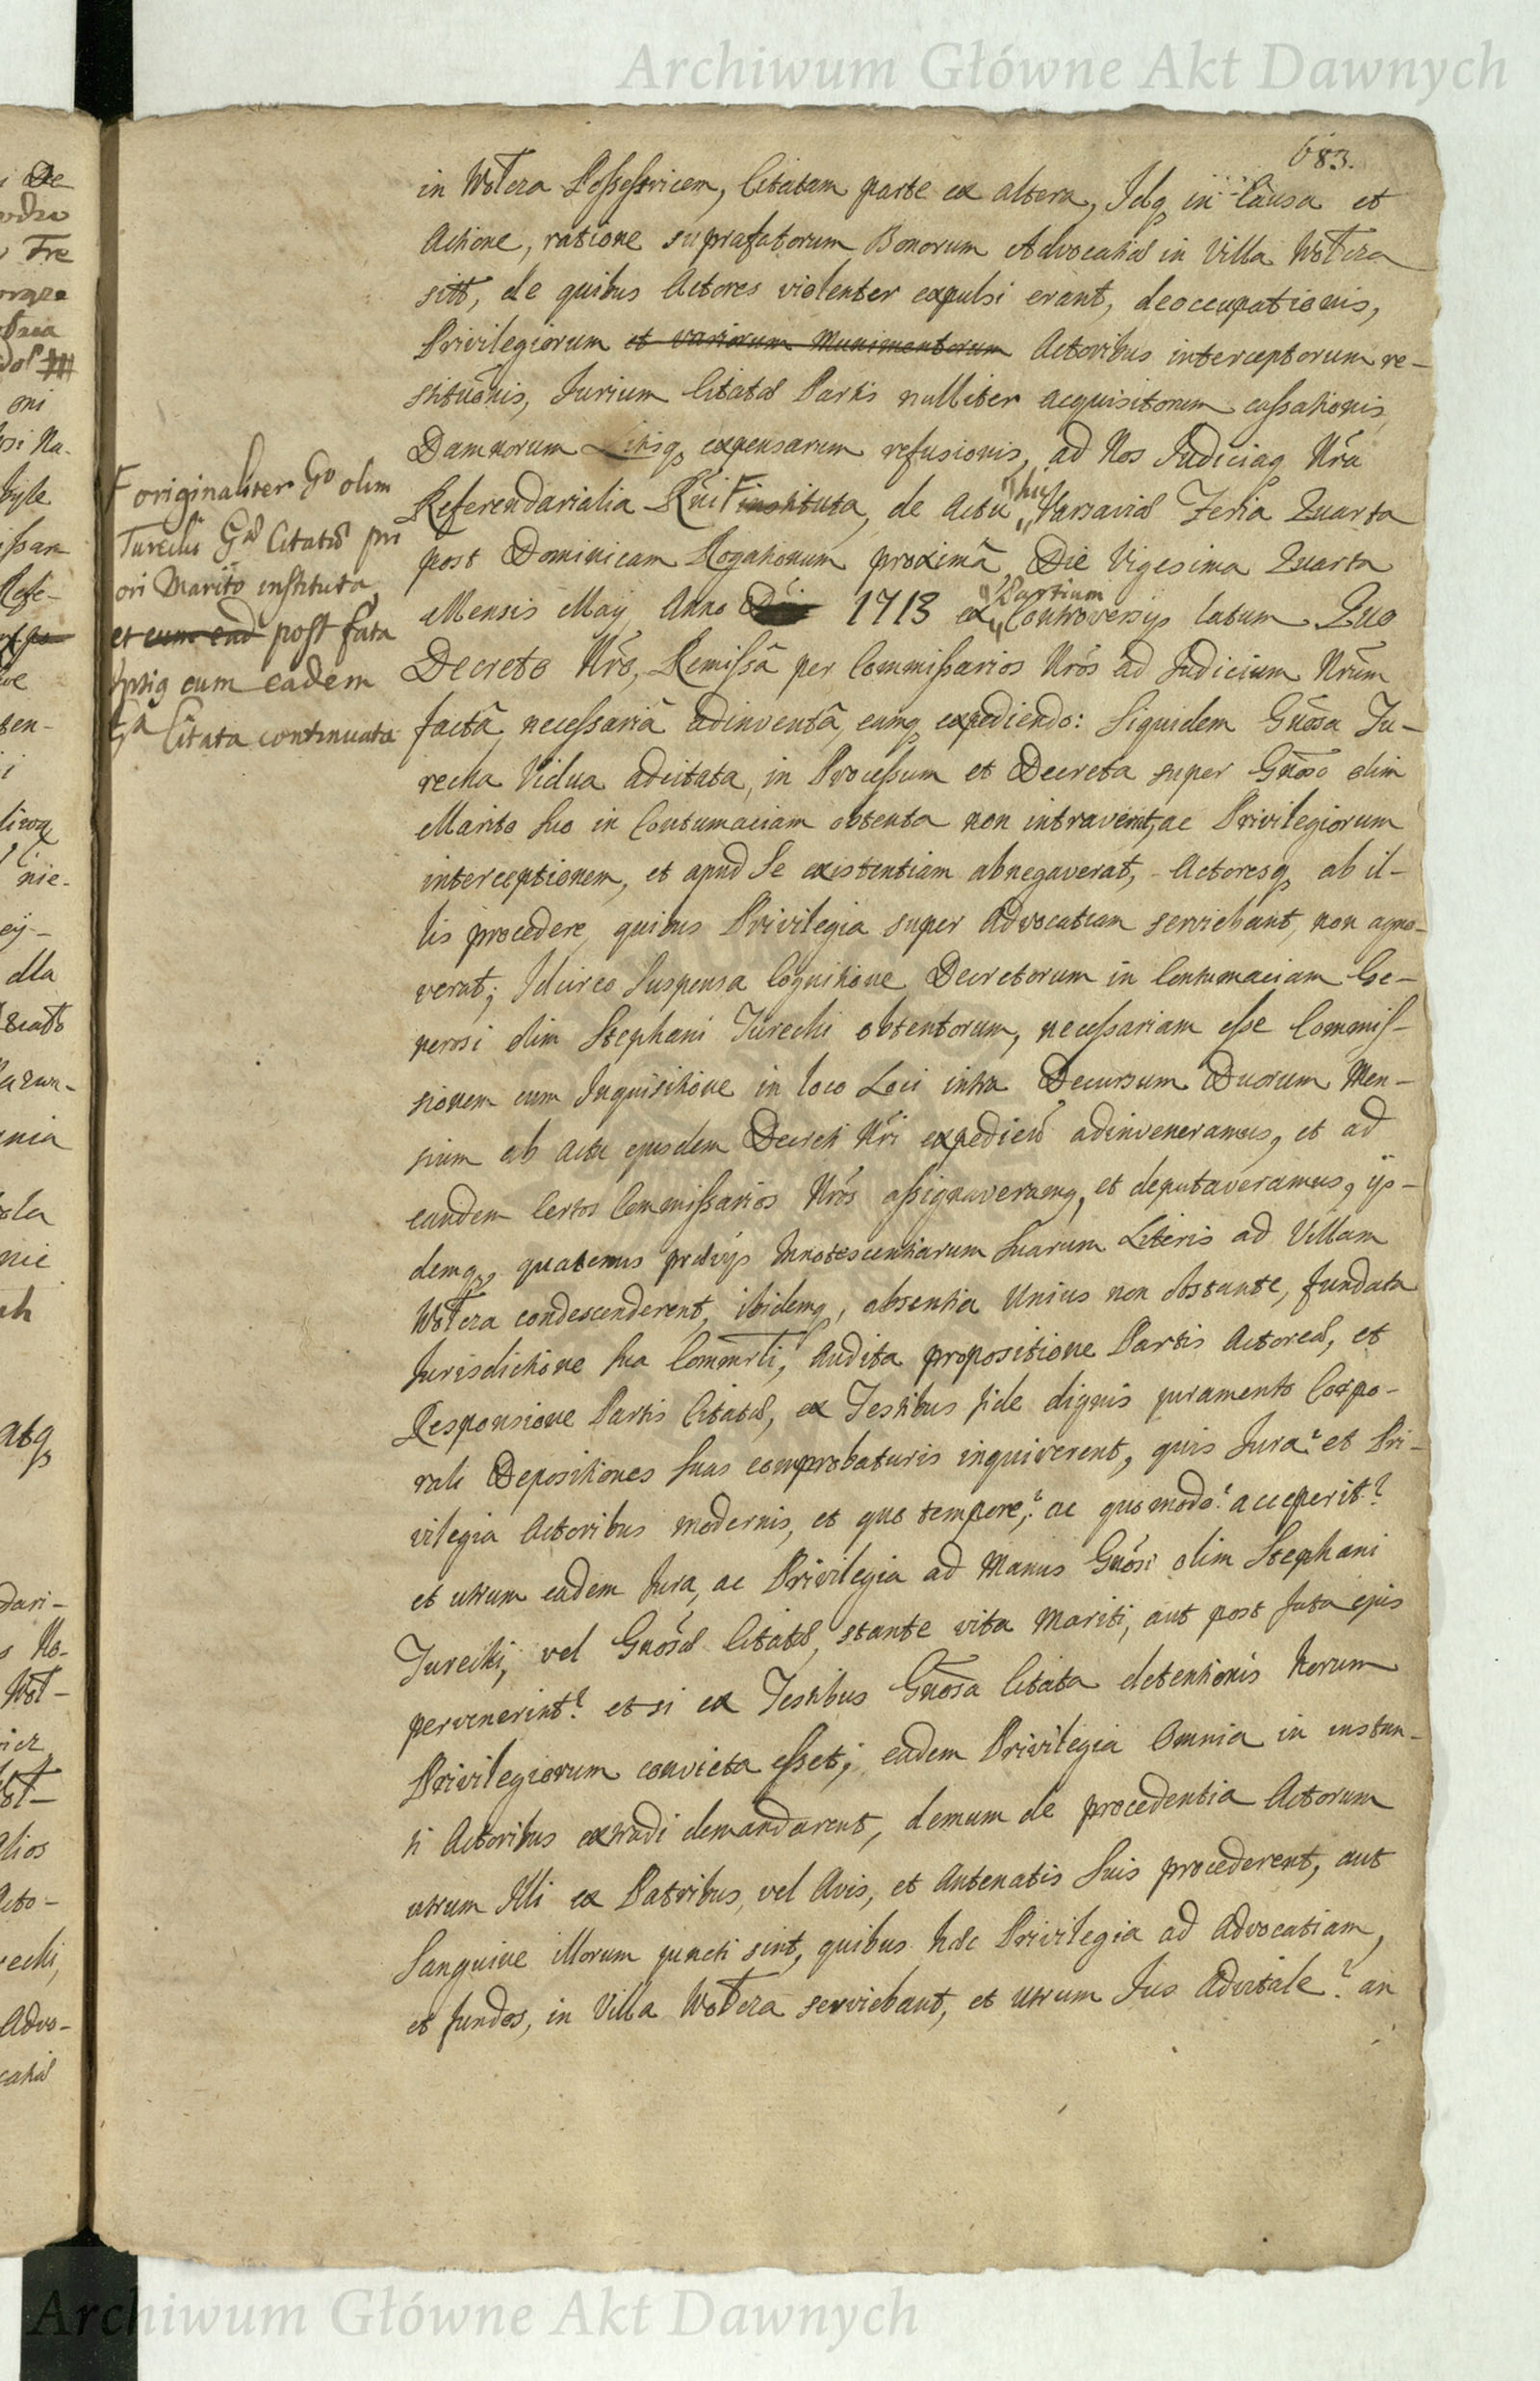 Archiwum Główne Akt Dawnych
683.
in Wolcza Possessricem, Citatam parte ex altera, Idq in Causa et
Actione, ratione suprafatorum Bonorum Advocatiæ in Villa Wolcza
sitt, de quibus Actores violenter expulsi erant, deoccupationis,
Privilegiorum et variorum Munimentorum Actoribus interceptorum re-
stitu͠onis, Jurium Citatæ Partis nulliter acquisitorum cassationis,
Damnorum Litisq expensarum refusionis, ad Nos Judiciaq N͠ra
Referendarialia R͠ni F instituta, de Actu Varsaviæ Feria Quarta
post Dominicam Rogationum proxima, Die Vigesima Quarta
Mensis Maij Anno 1713 ex Partium Controversijs latum Quo
Decreto N͠ro, Remissa per Commissarios N͠ros ad Judicium N͠rum
facta, necessaria adinventa, eamq expediendo: Siquidem G͠nosa Tu-
recka Vidua adcitata, in Processum et Decreta super G͠noso olim
Marito suo in Contumaciam obtenta non intraverit, ac Privilegiorum
interceptionem, et apud Se existentiam abnegaverat, Actoresq ab il-
lis procedere, quibus Privilegia super Advocatiam serviebant, non agno-
verat; Idcirco Suspensa Cognitione Decretorum in Contumaciam Ge-
nerosi olim Stephani Turecki obtentorum, necessariam esse Commis-
sionem cum Inquisitione in loco Loci intra Decursum Duorum Men-
sium ab actu ejusdem Decreti N͠ri expedien adinveneramus, et ad
eandem Certos Commissarios N͠ros assignaveramq, et deputaveramus, ijs-
demq, quatenus prævijs Innotescentiarum Suarum Literis ad Villam
Wolcza condescenderent, ibidemq, absentia Unius non obstante, fundata
Jurisdictione sua Commrli, Audita propositione Partis Actoreæ, et
Responsione Partis Citatæ, ex Testibus fide dignis juramento Corpo-
rali Depositiones suas comprobaturis inquirerent, quis Jura? et Pri-
vilegia Actoribus modernis, et quo tempore,? ac quo modo? acceperit?
et utrum eadem Jura, ac Privilegia ad Manus G͠nosi olim Stephani
Turecki, vel G͠nosæ Citatæ, stante vita Mariti, aut post fata ejus
pervenerint? et si ex Testibus G͠nosa Citata detentionis Horum
Privilegiorum convicta esset; eadem Privilegia Omnia in instan-
ti Actoribus extradi demandarent, demum de procedentia Actorum
utrum Illi ex Patribus, vel Avis, et Antenatis Suis procederent, aut
Sanguine illorum juncti sint, quibus hæc Privilegia ad Advocatiam,
et fundos, in Villa Wolcza serviebant, et utrum Jus Advitale? an
F originaliter G͠o olim
Turecki G͠æ Citatæ pri
ori Marito instituta,
et cum ead post fata
ipsiq cum eadem
G͠a Citata continuata
Archiwum Główne Akt Dawnych